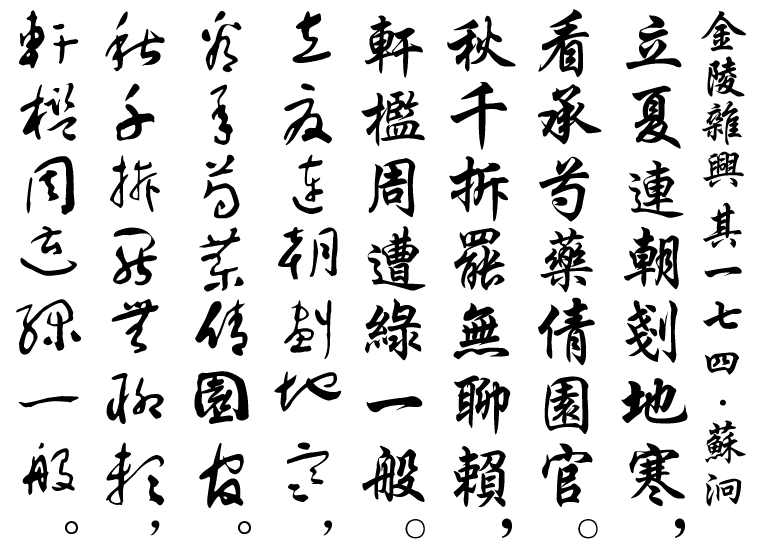 金陵雜興其一七四·蘇泂
立夏連朝剗地寒，
看承芍藥倩園官。
秋千拆罷無聊賴，
軒檻周遭綠一般。
立夏連朝剗地寒，
看承芍藥倩園官。
秋千拆罷無聊賴，
軒檻周遭綠一般。